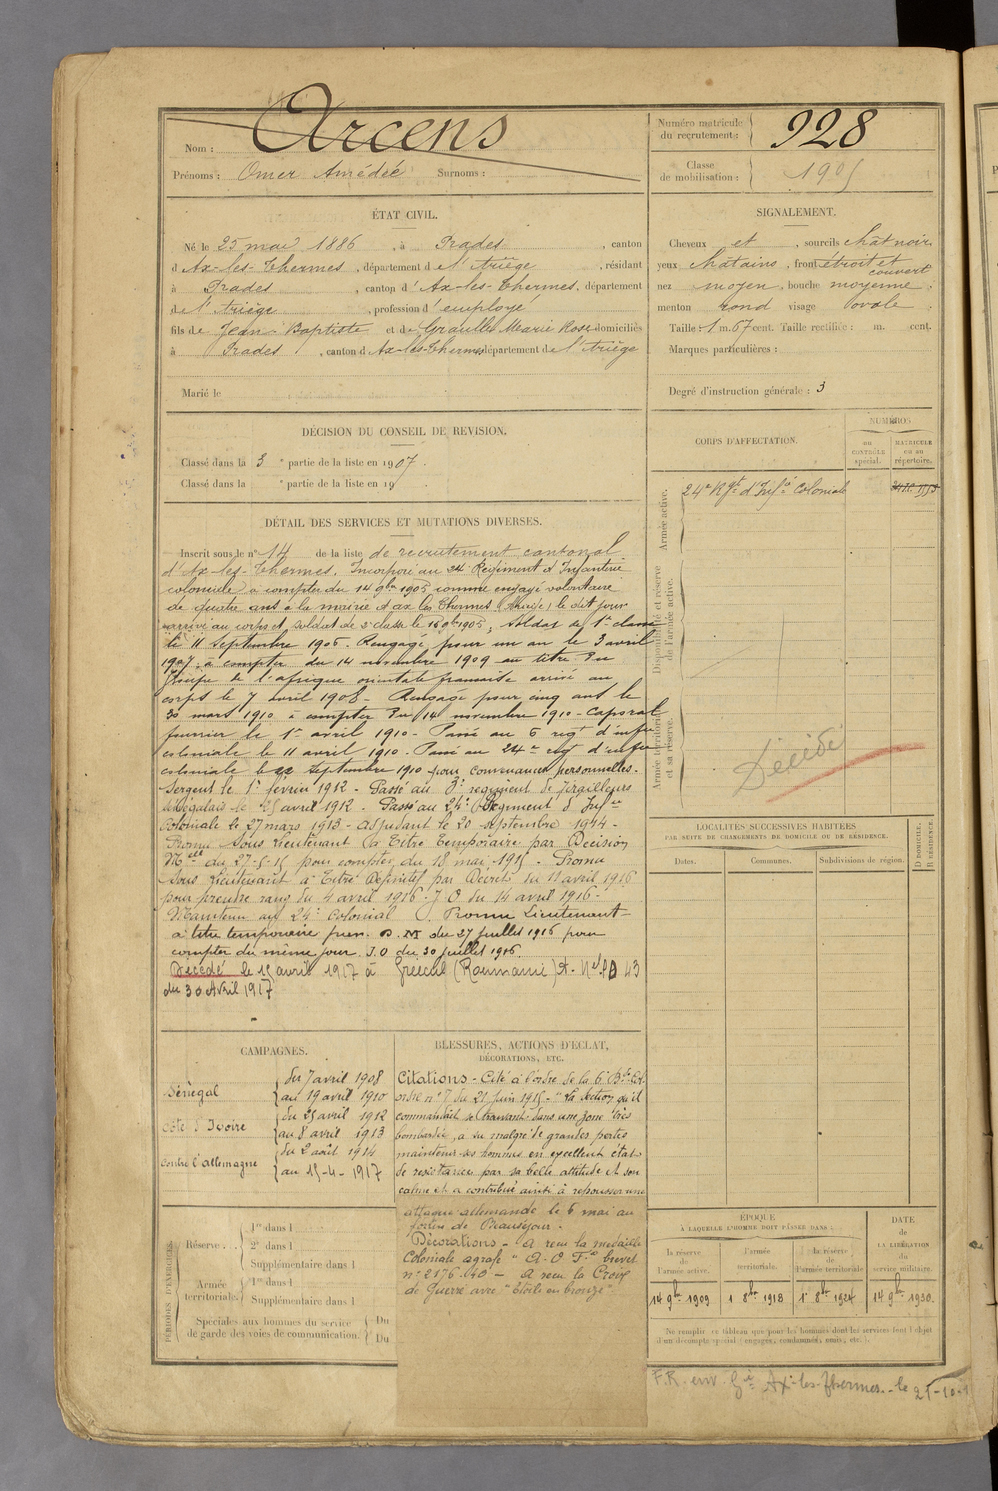 Nom : Arcens
Prénoms : Omer Amédée Surnoms :
Numéro matricule
du recrutement : 928
Classe
de mobilisation : 1905
ÉTAT CIVIL.
Né le 25 mai 1886, à Prades, canton
d'Ax-les-Thermes, département de l'Ariège, résidant
à Prades, canton d'Ax-les-Thermes, département
de l'Ariège, profession d'employé
fils de Jean-Baptiste et de Graulle Marie Rose domiciliés
à Prades, canton d'Ax-les-Thermes, département de l'Ariège
Marié le
SIGNALEMENT.
Cheveux et , sourcils chât noir,
yeux châtains, front étroit et couvert
nez moyen, bouche moyenne,
menton rond visage ovale
Taille : 1 m. 67 cent. Taille rectifiée : m. cent.
Marques particulières :
Degré d'instruction générale : 3
DÉCISION DU CONSEIL DE REVISION.
Classé dans la 3e partie de la liste en 1907.
Classé dans la e partie de la liste en 19
DÉTAIL DES SERVICES ET MUTATIONS DIVERSES.
Inscrit sous le n° 14 de la liste de recrutement cantonal
d'Ax-les-Thermes. Incorporé au 24e Régiment d'Infanterie
coloniale à compter du 14 9bre 1905 comme engagé volontaire
de quatre ans à la mairie d'ax les Thermes (Ariège) le dit jour
arrivé au corps et soldat de 2e classe le 16 9bre 1905, Soldat de 1re classe
le 11 septembre 1906. Rengagé pour un an le 3 avril
1907 à compter du 14 novembre 1909 au titre du
de l'afrique française arrivé au
corps le 7 avril 1908 - Rengagé pour cinq ans le
30 mars 1910 à compter du 14 novembre 1910 - Caporal
fourrier le 1er avril 1910 - Passé au 6 régt d'infie
coloniale le 11 avril 1910 - Passé au 24e régt d'infie
coloniale le 22 septembre 1910 pour convenances personnelles.
Sergent le 1er février 1912 - Passé au 3e régiment de Tirailleurs
sénégalais le 25 avril 1912 - Passé au 24e Régiment d'Infie
Coloniale le 27 mars 1913 - adjudant le 20 septembre 1914 -
Promu Sous Lieutenant à Titre Temporaire par Décision
Melle du 27-5-15 pour compter du 18 mai 1915 - Promu
Sous Lieutenant à Titre Définitif par Décret du 11 avril 1916
pour prendre rang du 4 avril 1916. J O du 14 avril 1916 -
Maintenu au 24e Colonial. Promu Lieutenant
à titre temporaire par D.M du 27 juillet 1916 pour
compter du même jour J.O du 30 juillet 1916.
Décédé le 15 avril 1917 à (Roumanie) 43
du 30 Avril 1917
CORPS D'AFFECTATION.
NUMÉROS
AU CONTRÔLE spécial.
MATRICULE OU AU répertoire.
Armée active.
24e Rgt d'Infie Coloniale
Disponibilité et réserve de l'armée active.
Armée territoriale et sa réserve.
Décédé
LOCALITÉS SUCCESSIVES HABITÉES
PAR SUITE DE CHANGEMENTS DE DOMICILE OU DE RÉSIDENCE.
Dates. Communes. Subdivisions de région.
D DOMICILE.
R RÉSIDENCE.
CAMPAGNES.
Sénégal du 7 avril 1908
au 19 avril 1910
Côte d'Ivoire du 25 avril 1912
au 8 avril 1913
contre l'Allemagne du 2 août 1914
au 15-4-1917
BLESSURES, ACTIONS D'ÉCLAT,
DÉCORATIONS, ETC.
Citations - Cité à l'ordre de la 6e Bde Col
ordre n° 7 du 21 juin 1915 - "La section qu'il
commandait se trouvant dans une zone très
bombardée, a su malgré de grandes pertes
maintenir ses hommes en excellent état
de résistance par sa belle attitude et son
calme et a contribué ainsi à repousser une
attaque allemande le 6 mai au
fortin de Beauséjour.
Décorations - A reçu la médaille
Coloniale agrafe "A-O Fse" brevet
n° 2176 40 - A reçu la Croix
de Guerre avec "Etoile en bronze"
PÉRIODES D'EXERCICES.
Réserve. . 1re dans l
2e dans l
Supplémentaire dans l
Armée territoriale. 1re dans l
Supplémentaire dans l
Spéciales aux hommes du service
de garde des voies de communication. Du
Du
ÉPOQUE
À LAQUELLE L'HOMME DOIT PASSER DANS :
la réserve de l'armée active.
l'armée territoriale.
la réserve de l'armée territoriale
DATE DE LA LIBÉRATION du service militaire.
14 9bre 1909
1 8bre 1918
1er 8bre 1924
14 9bre 1930.
Ne remplir ce tableau que pour les hommes dont les services font l'objet
d'un décompte spécial (engagés, condamnés, omis, etc.).
F.R. env. Gie Ax-les-Thermes - le 21-10-1